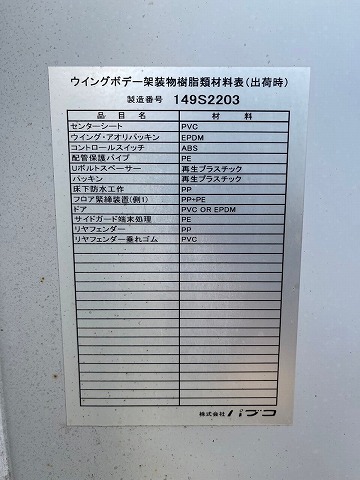 ウイングボデー架装物樹脂類材料表(出荷時)
製造番号 149S2203
品目名 材料
センターシート PVC
ウイング・アオリパッキン EPDM
コントロールスイッチ ABS
配管保護パイプ PE
Uボルトスペーサー 再生プラスチック
パッキン 再生プラスチック
床下防水工作 PP
フロア緊締装置(側1) PP+PE
ドア PVC OR EPDM
サイドガード端末処理 PE
リヤフェンダー PP
リヤフェンダー垂れゴム PVC
株式会社 パブコ